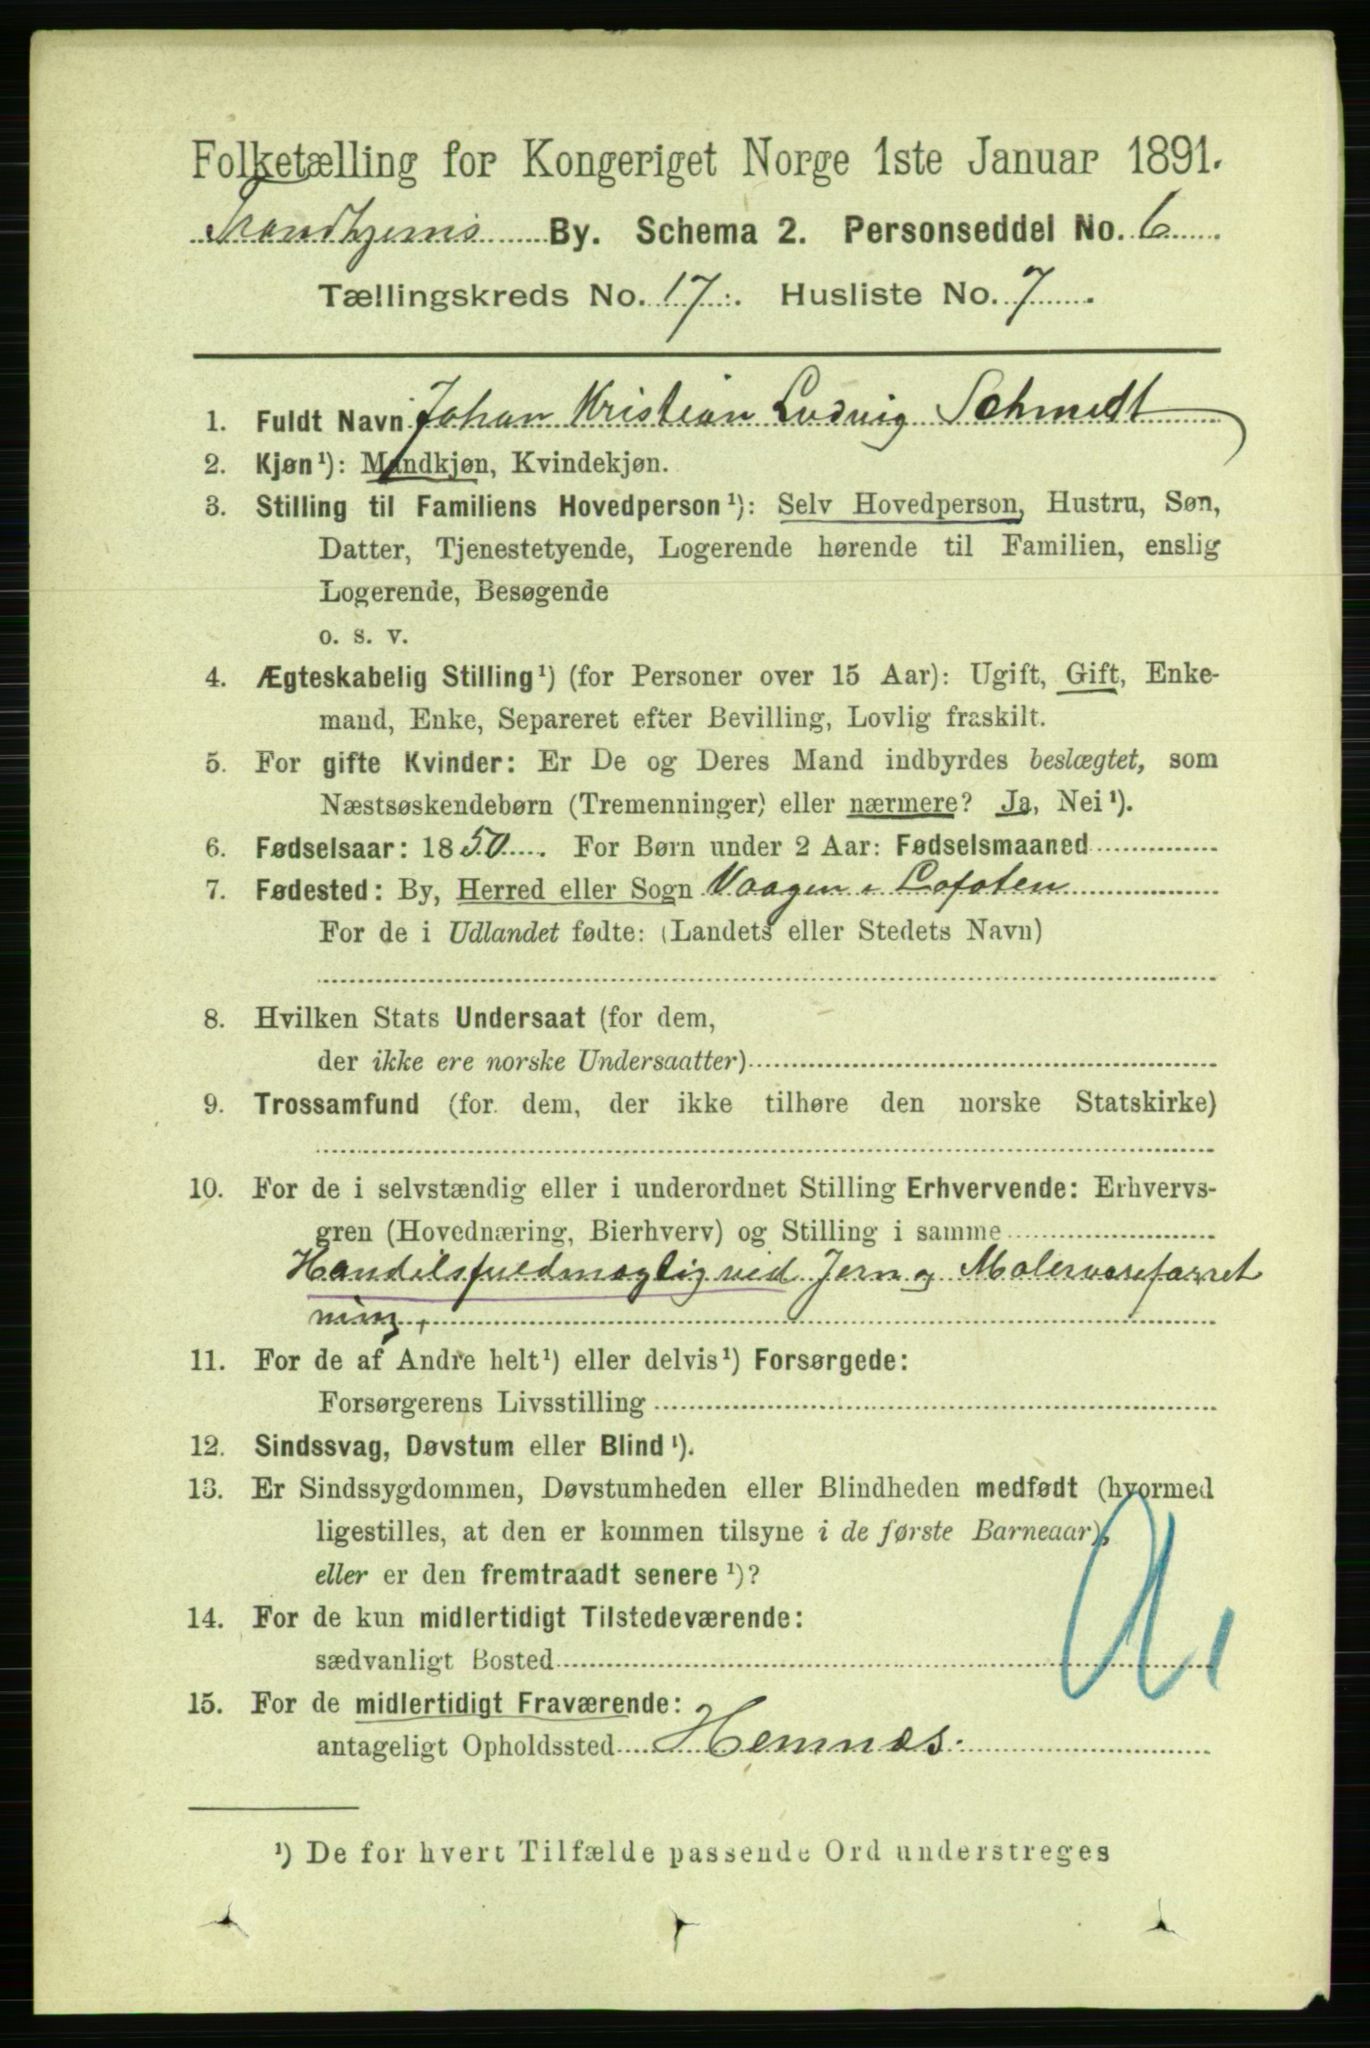 Folketælling for Kongeriget Norge 1ste Januar 1891.
Trondhjems By. Schema 2. Personseddel No. 6
Tællingskreds No. 17. Husliste No. 7.
1. Fuldt Navn Johan Kristian Ludvig Schmidt
2. Kjøn¹): Mandkjøn, Kvindekjøn.
3. Stilling til Familiens Hovedperson¹): Selv Hovedperson, Hustru, Søn,
Datter, Tjenestetyende, Logerende hørende til Familien, enslig
Logerende, Besøgende
o. s. v.
4. Ægteskabelig Stilling¹) (for Personer over 15 Aar): Ugift, Gift, Enke-
mand, Enke, Separeret efter Bevilling, Lovlig fraskilt.
5. For gifte Kvinder: Er De og Deres Mand indbyrdes beslægtet, som
Næstsøskendebørn (Tremenninger) eller nærmere? Ja, Nei¹).
6. Fødselsaar: 1850. For Børn under 2 Aar: Fødselsmaaned
7. Fødested: By, Herred eller Sogn Vaagen i Lofoten
For de i Udlandet fødte: (Landets eller Stedets Navn)
8. Hvilken Stats Undersaat (for dem,
der ikke ere norske Undersaatter)
9. Trossamfund (for dem, der ikke tilhøre den norske Statskirke)
10. For de i selvstændig eller i underordnet Stilling Erhvervende: Erhvervs-
gren (Hovednæring, Bierhverv) og Stilling i samme
Handelsfuldmægtig ved Jern og Malervareforret
ning,
11. For de af Andre helt¹) eller delvis¹) Forsørgede:
Forsørgerens Livsstilling
12. Sindssvag, Døvstum eller Blind¹).
13. Er Sindssygdommen, Døvstumheden eller Blindheden medfødt (hvormed
ligestilles, at den er kommen tilsyne i de første Barneaar),
eller er den fremtraadt senere¹)?
14. For de kun midlertidigt Tilstedeværende:
sædvanligt Bosted
15. For de midlertidigt Fraværende:
antageligt Opholdssted Hemnæs.
¹) De for hvert Tilfælde passende Ord understreges